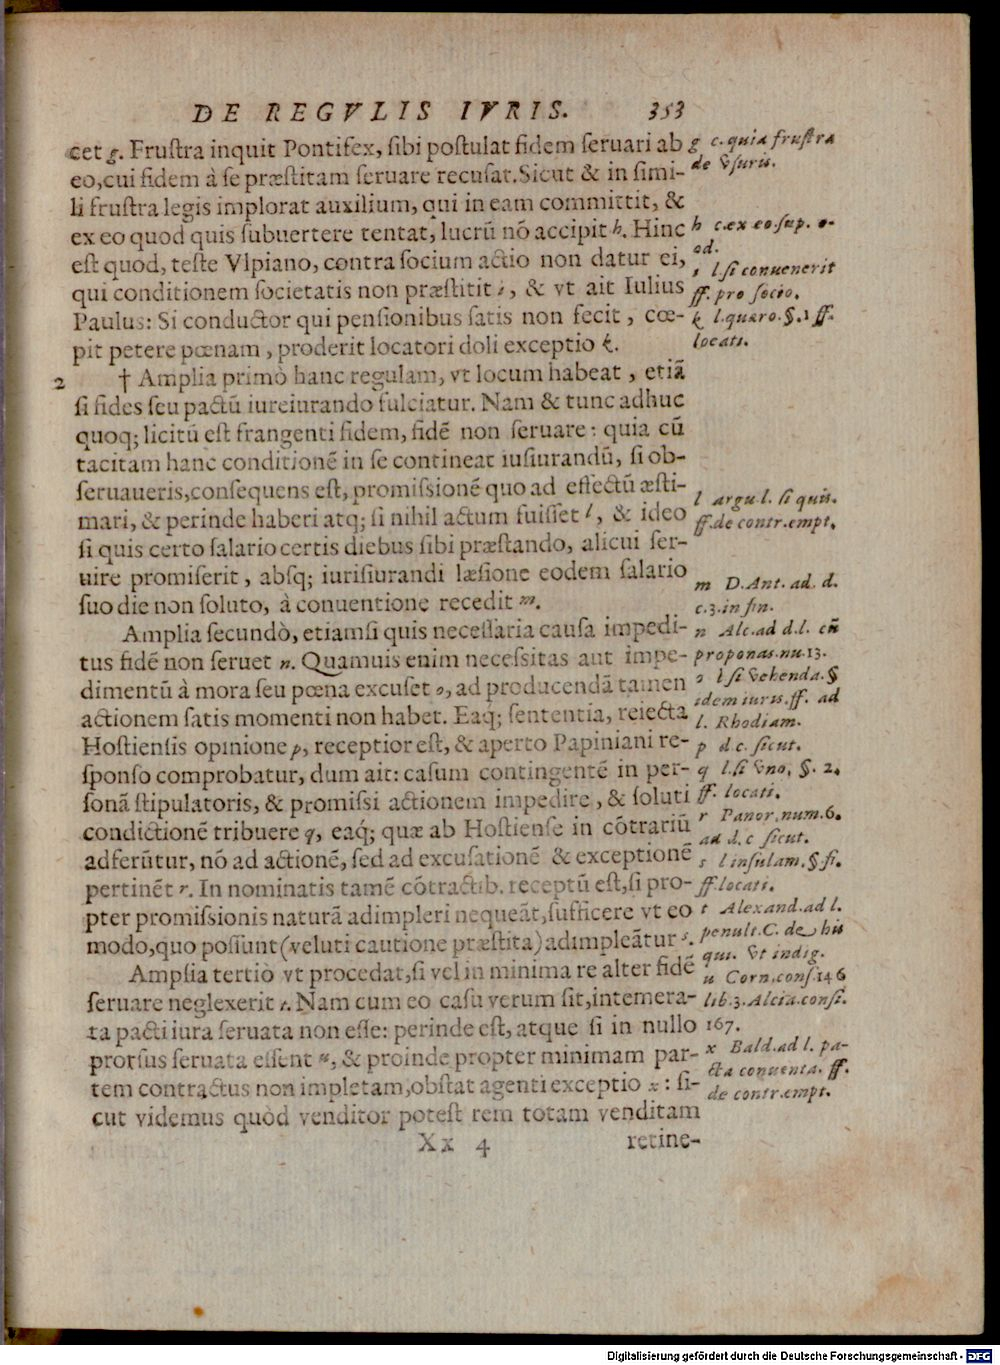 DE REGVLIS IVRIS. 353
cet g. Frustra inquit Pontifex, sibi postulat fidem seruari ab
eo, cui fidem à se præstitam seruare recusat. Sicut & in simi-
li frustra legis implorat auxilium, qui in eam committit, &
ex eo quod quis subuertere tentat, lucrũ nõ accipit h. Hinc
est quod, teste Vlpiano, contra socium actio non datur ei,
qui conditionem societatis non præstitit i, & vt ait Iulius
Paulus: Si conductor qui pensionibus satis non fecit, cœ-
pit petere pœnam, proderit locatori doli exceptio k.
2 † Amplia primò hanc regulam, vt locum habeat, etiã
si fides seu pactũ iureiurando fulciatur. Nam & tunc adhuc
quoq; licitũ est frangenti fidem, fidẽ non seruare: quia cũ
tacitam hanc conditionẽ in se contineat iusiurandũ, si ob-
seruaueris, consequens est, promissionẽ quo ad effectũ æsti-
mari, & perinde haberi atq; si nihil actum fuisset l, & ideo
si quis certo salario certis diebus sibi præstando, alicui ser-
uire promiserit, absq; iurisiurandi læsione eodem salario
suo die non soluto, à conuentione recedit m.
Amplia secundò, etiamsi quis necessaria causa impedi-
tus fidẽ non seruet n. Quamuis enim necessitas aut impe-
dimentũ à mora seu pœna excuset o, ad producendã tamen
actionem satis momenti non habet. Eaq́; sententia, reiecta
Hostiensis opinione p, receptior est, & aperto Papiniani re-
sponso comprobatur, dum ait: casum contingentẽ in per-
sonã stipulatoris, & promissi actionem impedire, & soluti
condictionẽ tribuere q, eaq́; quæ ab Hostiense in cõtrariũ
adferũtur, nõ ad actionẽ, sed ad excusationẽ & exceptionẽ
pertinẽt r. In nominatis tamẽ cõtractib. receptũ est, si pro-
pter promissionis naturã adimpleri nequeãt, sufficere vt eo
modo, quo possunt (veluti cautione præstita) adimpleãtur s.
Amplia tertiò vt procedat, si vel in minima re alter fidẽ
seruare neglexerit t. Nam cum eo casu verum sit, intemera-
ta pacti iura seruata non esse: perinde est, atque si in nullo
prorsus seruata essent u, & proinde propter minimam par-
tem contractus non impletam, obstat agenti exceptio x: si-
cut videmus quòd venditor potest rem totam venditam
Xx 4 retine-
g c. quia frustra
de vsuris.
h c. ex eo. sup. e-
od.
i l. si conuenerit
ff. pro socio.
k l. quæro. §. 1 ff.
locati.
l argu. l. si quis.
ff. de contr. empt.
m D. Ant. ad. d.
c. 3. in fin.
n Alc. ad d. l. cũ
proponas. nu. 13.
o l. si vehenda. §
idem iuris. ff. ad
l. Rhodiam.
p d. c. sicut.
q l. si vno, §. 2.
ff. locati.
r Panor. num. 6.
ad d. c sicut.
s l insulam. § fi.
ff. locati.
t Alexand. ad l.
penult. C. de his
qui. vt indig.
u Corn. cons. 146
lib. 3. Alcia. consi.
167.
x Bald. ad l. pa-
cta conuenta. ff.
de contr. empt.
Digitalisierung gefördert durch die Deutsche Forschungsgemeinschaft - DFG